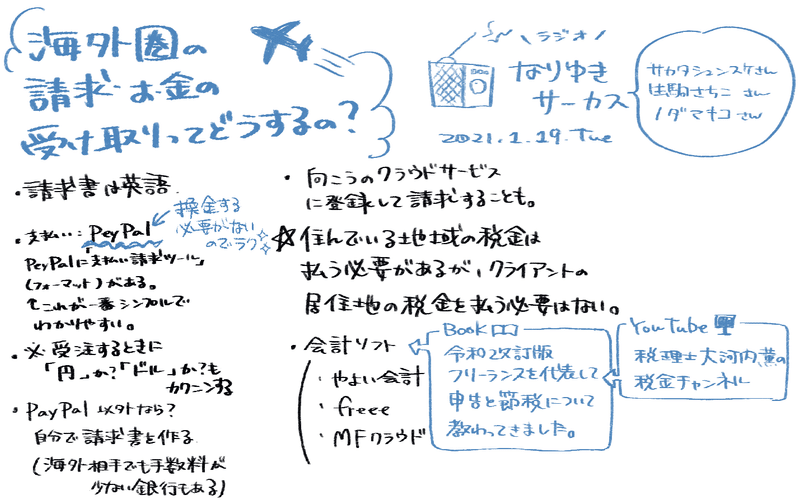 海外圏の
請求・お金の
受け取りってどうするの?
\ラジオ/
なりゆき
サーカス
2021.1.19.Tue
サカタシュンスケさん
生駒さちこ さん
ノダマキコさん
・請求書は英語
・支払い:PeyPal
換金する
必要がない
のでラク
PeyPalに「支払い請求ツール」
(フォーマット)がある。
↑これが一番シンプルで
わかりやすい。
・必ず受注するときに
「円」か?「ドル」か?も
カクニンする
・PayPal以外なら?
自分で請求書を作る
(海外相手でも手数料が
少ない銀行もある)
・向こうのクラウドサービス
に登録して請求することも。
☆住んでいる地域の税金は
払う必要があるが、クライアントの
居住地の税金を払う必要はない。
・会計ソフト
・やよい会計
・freee
・MFクラウド
Book
令和改訂版
フリーランスを代表して
申告と節税について
教わってきました。
YouTube
税理士大河内薫の
税金チャンネル